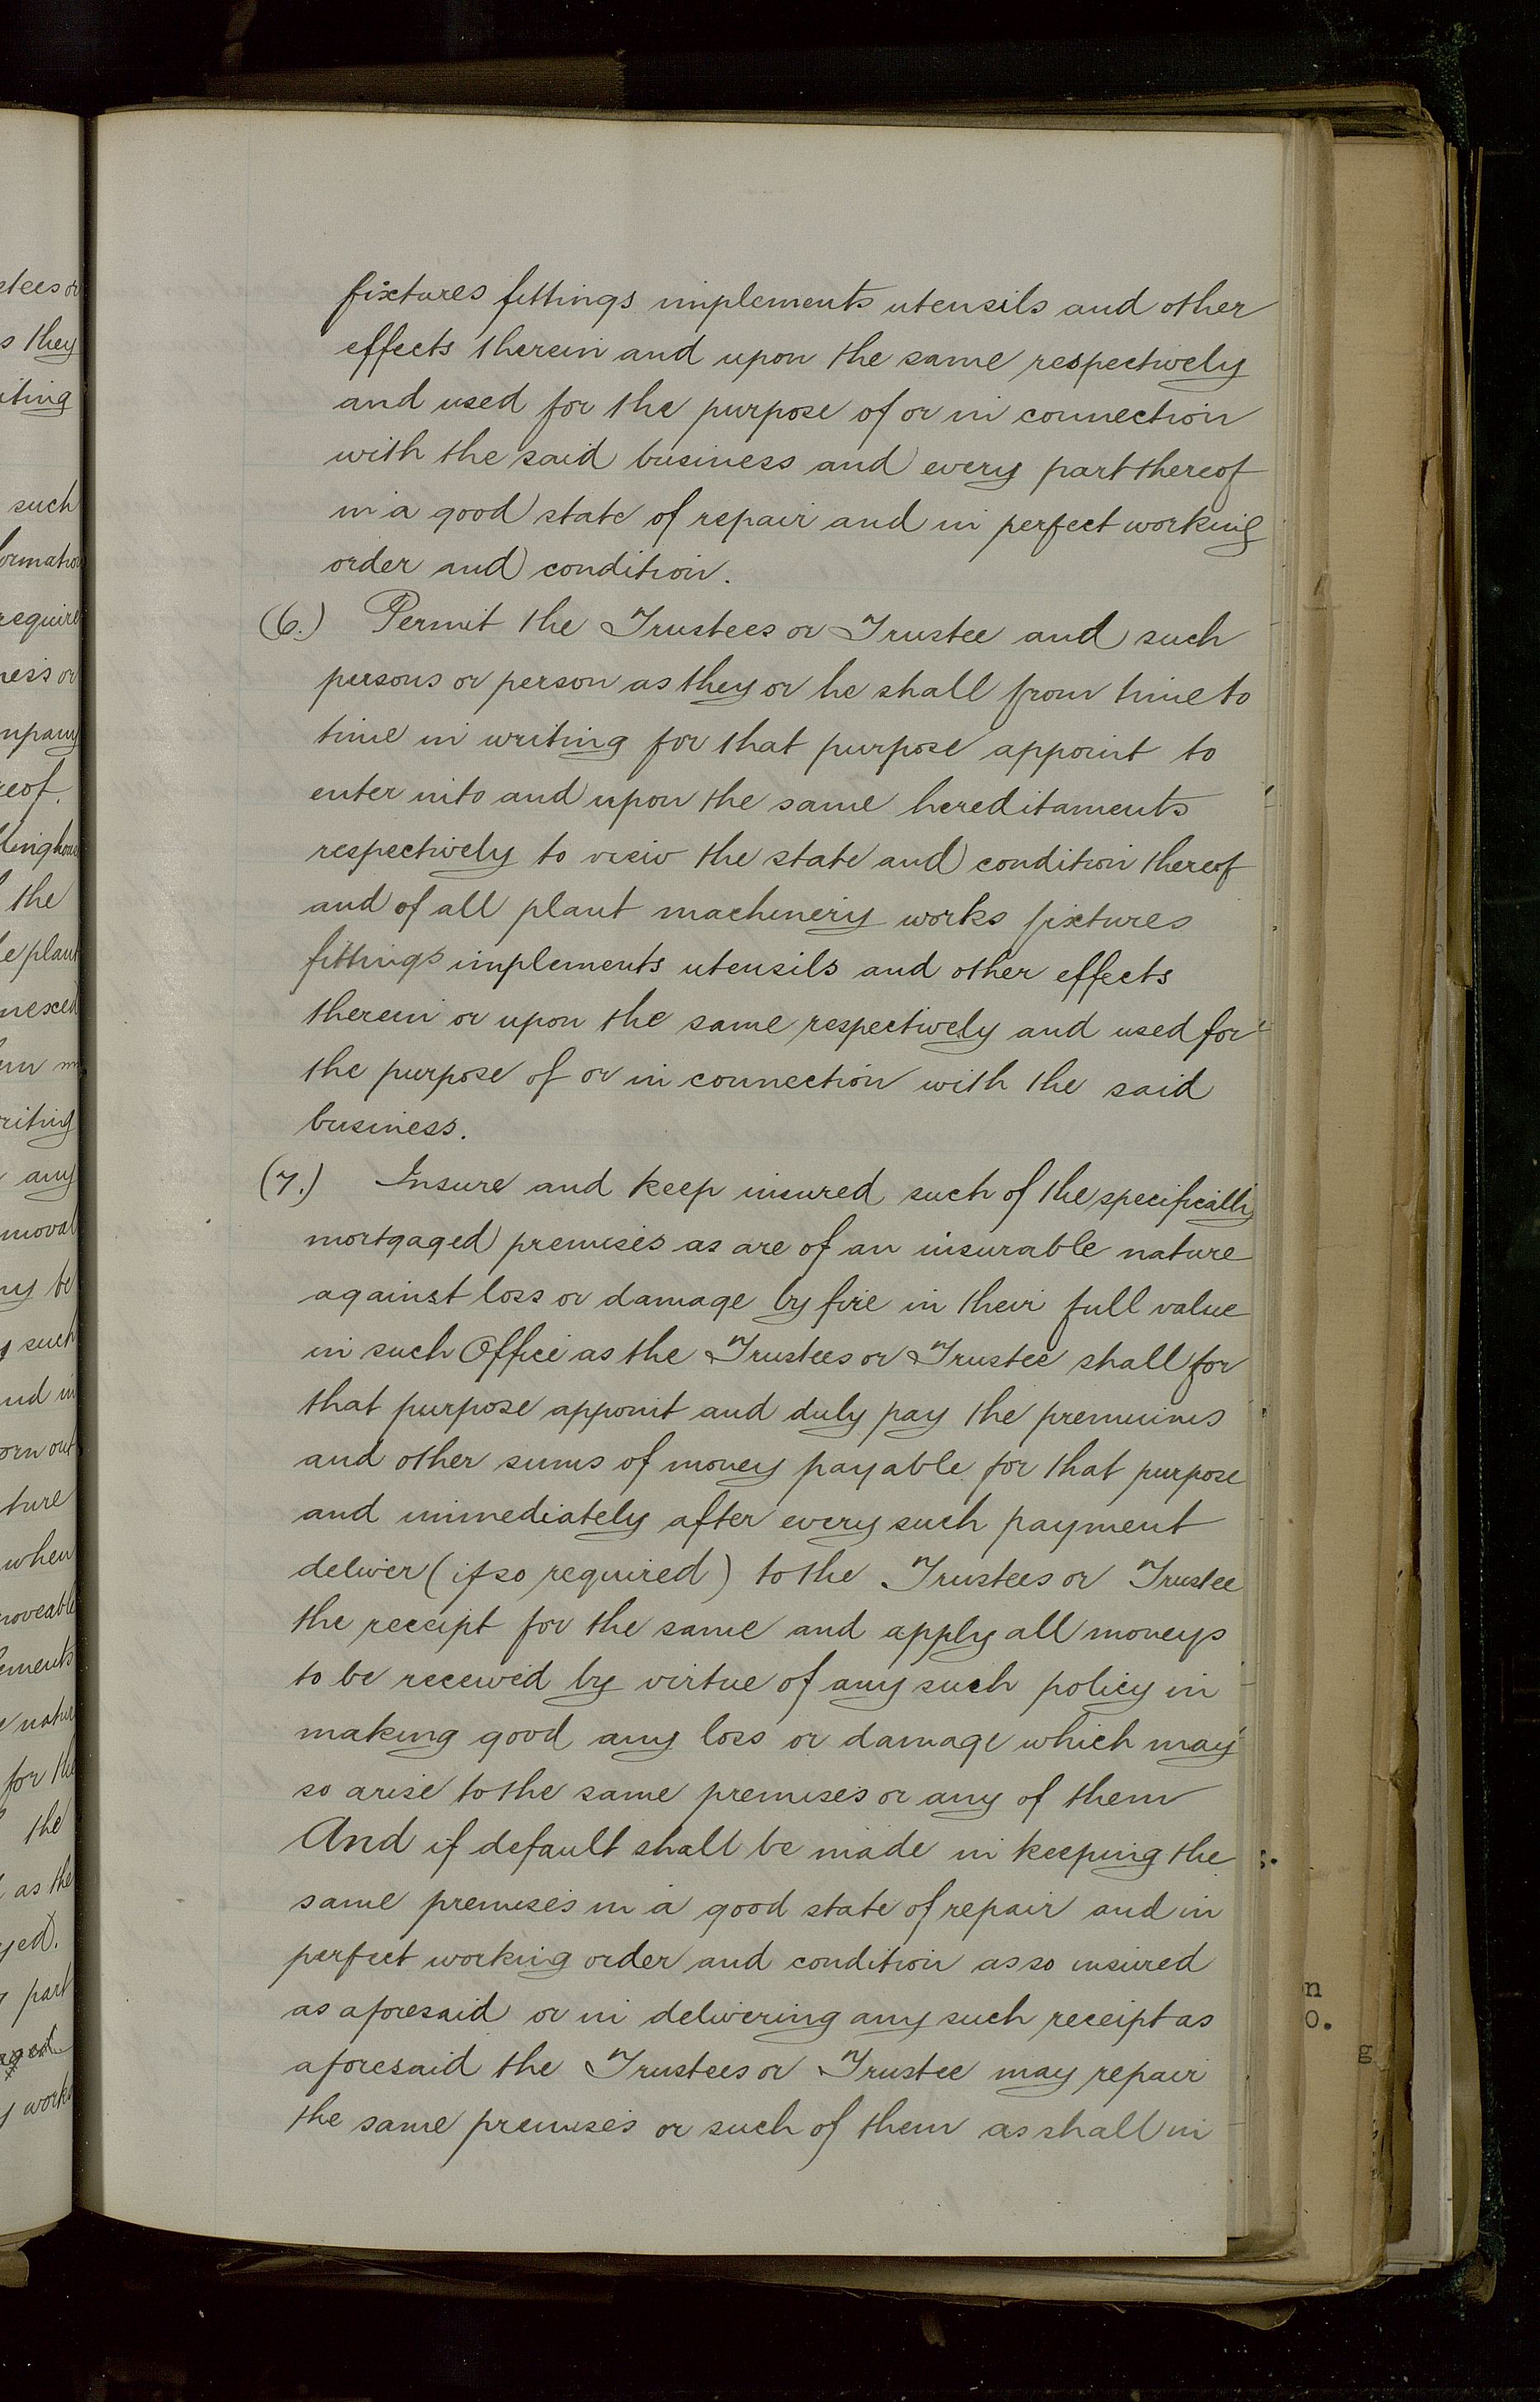 fixtures fittings implements utensils and other
effects therein and upon the same respectively
and used for the purpose of or in connection
with the said business and every part thereof
in a good state of repair and in perfect working
order and condition.
(6.) Permit the Trustees or Trustee and such
persons or person as they or he shall from time to
time in writing for that purpose appoint to
enter into and upon the same hereditaments
respectively to view the state and condition thereof
and of all plant machinery works fixtures
fittings implements utensils and other effects
therein or upon the same respectively and used for
the purpose of or in connection with the said
business.
(7.) Insure and keep insured such of the specifically
mortgaged premises as are of an insurable nature
against loss or damage by fire in their full value
in such Office as the Trustees or Trustee shall for
that purpose appoint and duly pay the premiums
and other sums of money payable for that purpose
and immediately after every such payment
deliver (if so required) to the Trustees or Trustee
the receipt for the same and apply all moneys
to be received by virtue of any such policy in
making good any loss or damage which may
so arise to the same premises or any of them
And if default shall be made in keeping the
same premises in a good state of repair and in
perfect working order and condition as so insured
as aforesaid or in delivering any such receipt as
aforesaid the Trustees or Trustee may repair
the same premises or such of them as shall in